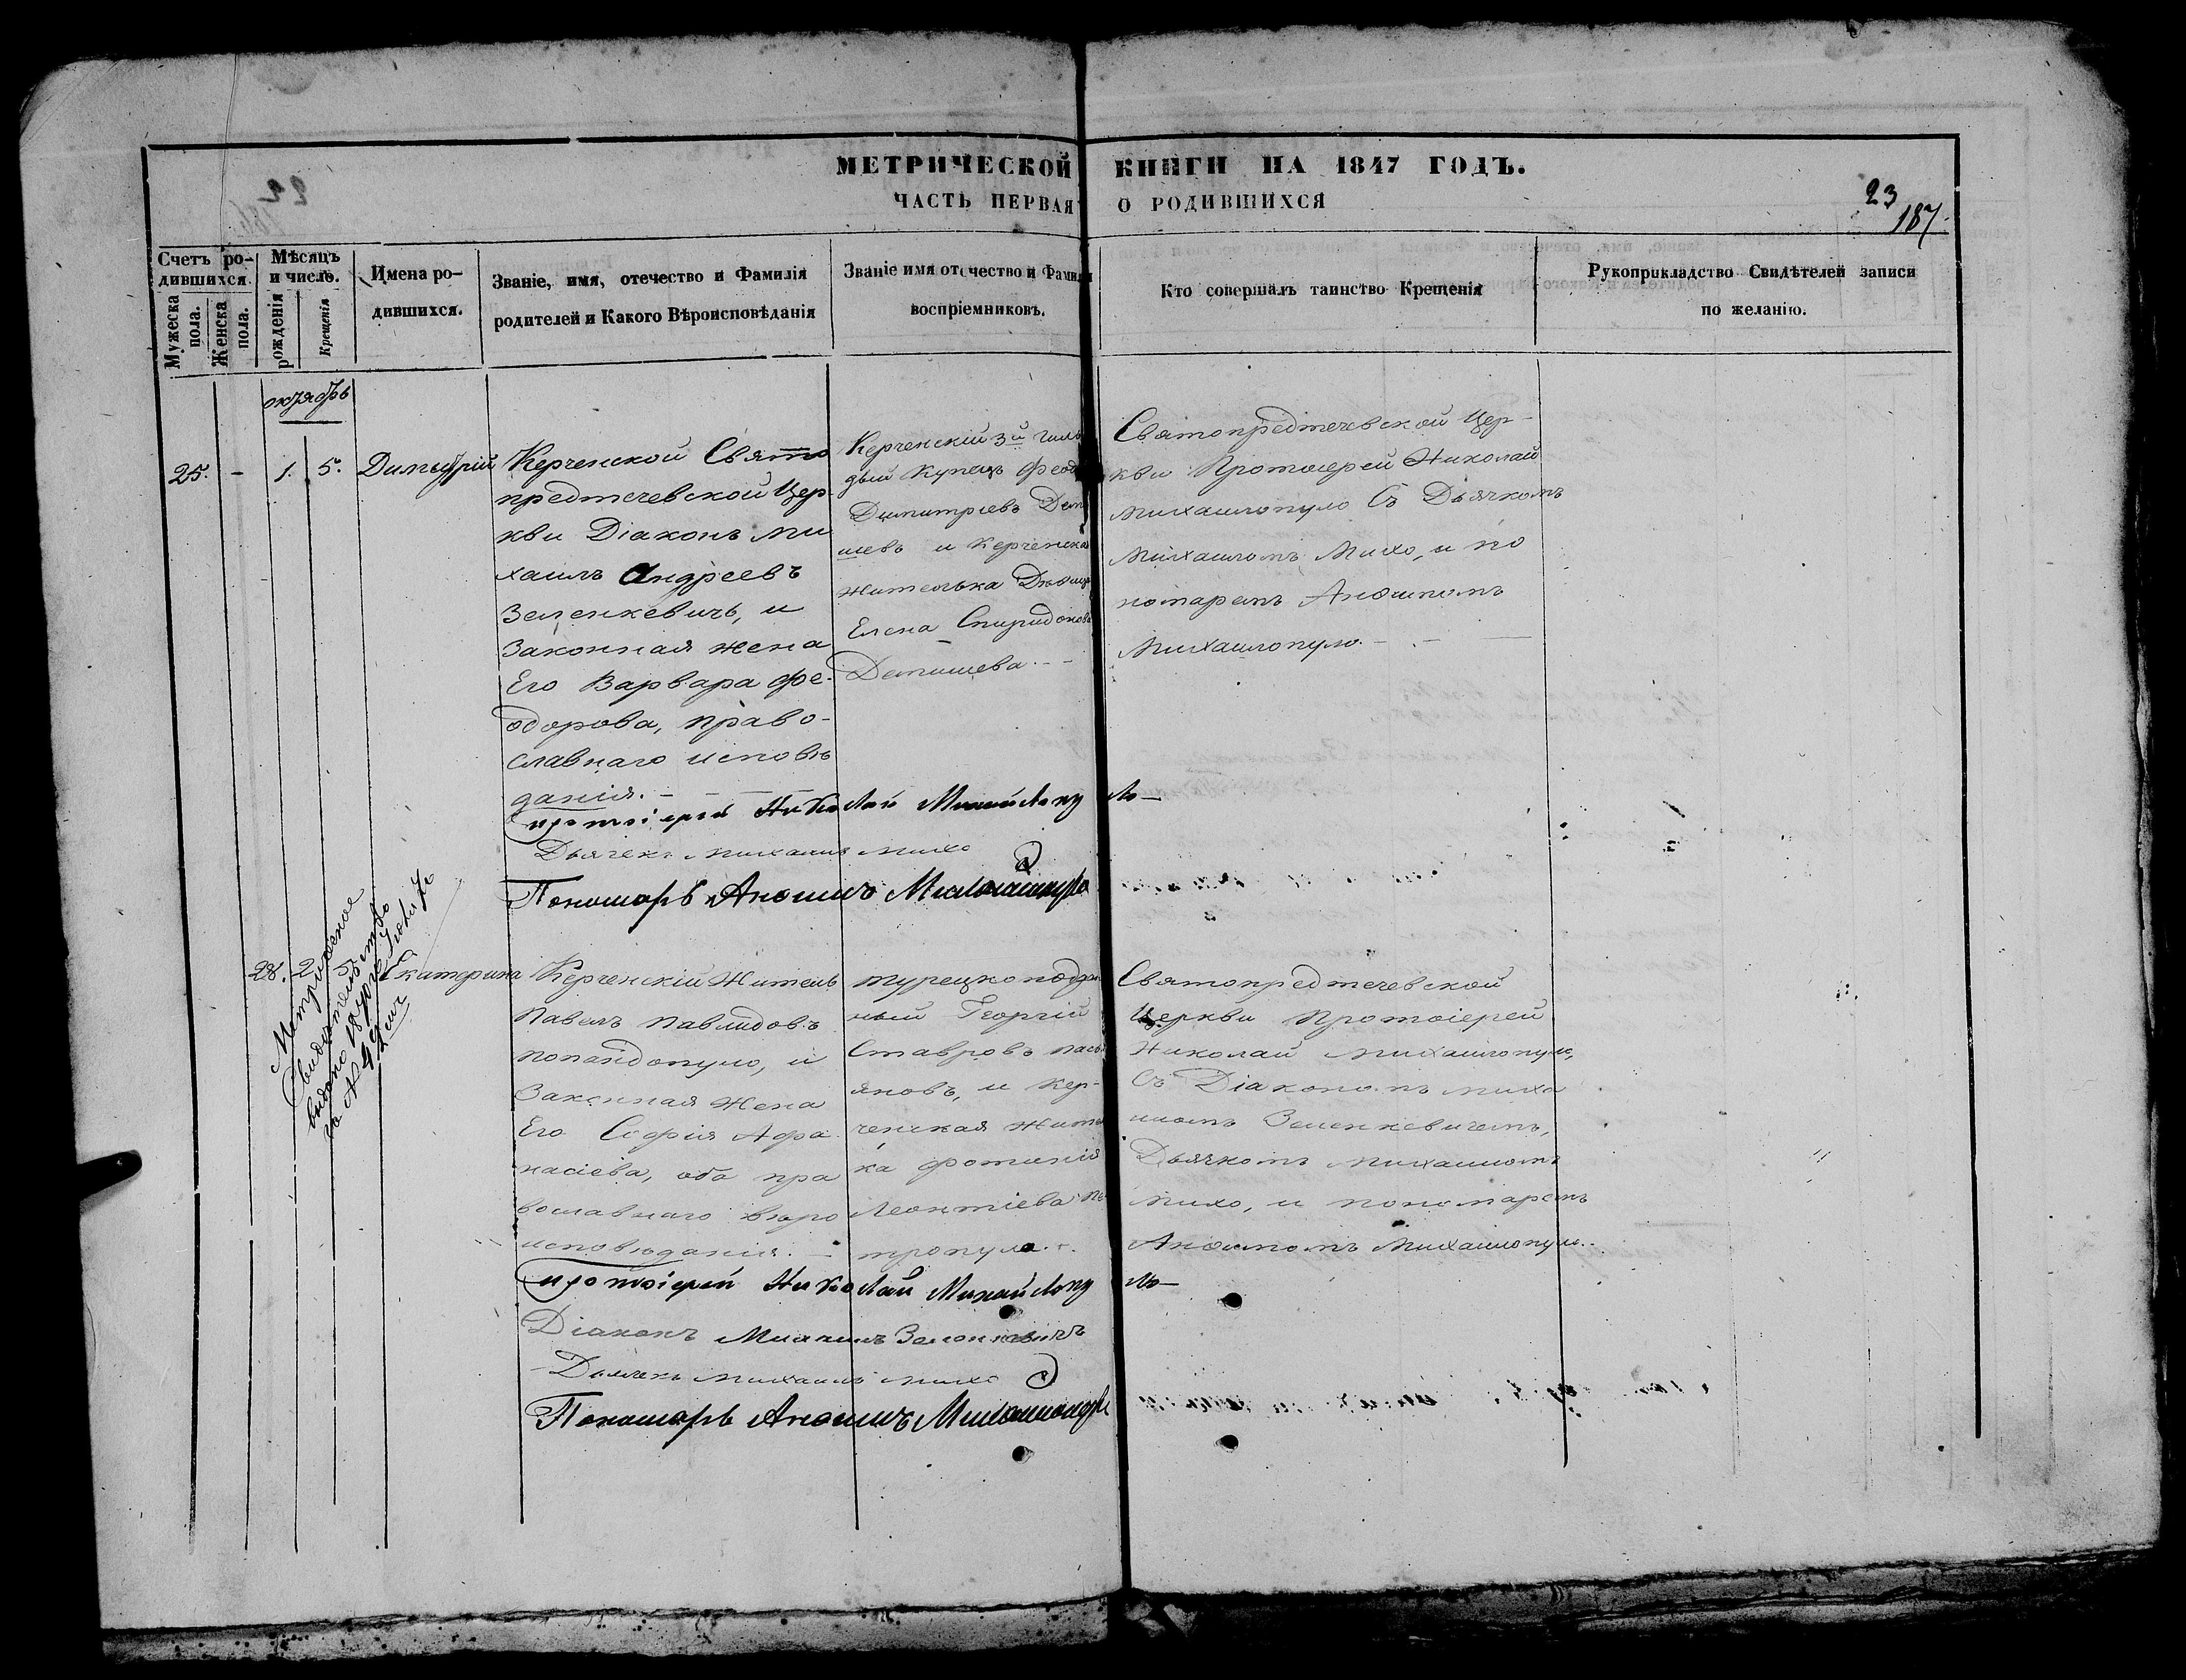 МЕТРИЧЕСКОЙ КНИГИ НА 1847 ГОДЪ.
ЧАСТЬ ПЕРВАЯ О РОДИВШИХСЯ
23
187.
Счетъ ро-
дившихся.
Мужеска
пола.
Женска
пола.
Мѣсяцъ
и число.
рожденія
Крещенія
Имена ро-
дившихся.
Званіе, имя, отечество и Фамилія
родителей и Какого Вѣроисповѣданія
Званіе имя отечество и Фамилія
воспріемниковъ.
Кто совершалъ таинство Крещенія
Рукоприкладство Свидѣтелей записи
по желанію.
октябрь
25. - 1. 5. Димитрій
Керченской Свято
предтечевской Цер-
кви Діаконъ Ми
хаилъ Андреевъ
Зеленкевичь, и
Законная жена
Его Варвара Фе-
одорова, право-
славнаго исповѣ
данія.
Керченскій 3й гиль
дый Купецъ Феод
Димитріевъ Дем
шевъ и Керченска
жителька Дѣвица
Елена Спиридонова
Демишева.
Святопредтечевской Цер-
кви Протоіерей Николай
Михаилопуло Съ Дьячкомъ
Михаиломъ Михо, и по
номаремъ Анѳимомъ
Михаилопуло.
протоіерей Николай Михайлопуло
Дьячекъ Михаилъ Михо
Пономарь Анѳимъ Михаилопуло
28. 2. Екатерина
Метрическое
Свидѣтельство
выдано
за №
Керченскій Житель
Павелъ Павлидовъ
Попандопуло, и
Законная Жена
Его Софія Афа
насіева, оба пра
вославнаго вѣро
исповѣданія.
турецкоподдан
ный Георгій
Ставровъ
яновъ, и Кер-
ченская Жител
ка Фотинія
Леонтіева Пе
тропуло.
Святопредтечевской
Церкви Протоіерей
Николай Михаилопуло,
Съ Діакономъ Миха
иломъ Зеленкевичемъ,
Дьячкомъ Михаиломъ
Михо, и пономаремъ
Анѳимомъ Михаилопуло.
протоіерей Николай Михайлопуло
Діаконъ Михаилъ Зеленкевичъ
Дьячекъ Михаилъ Михо
Пономарь Анѳимъ Михаилопуло